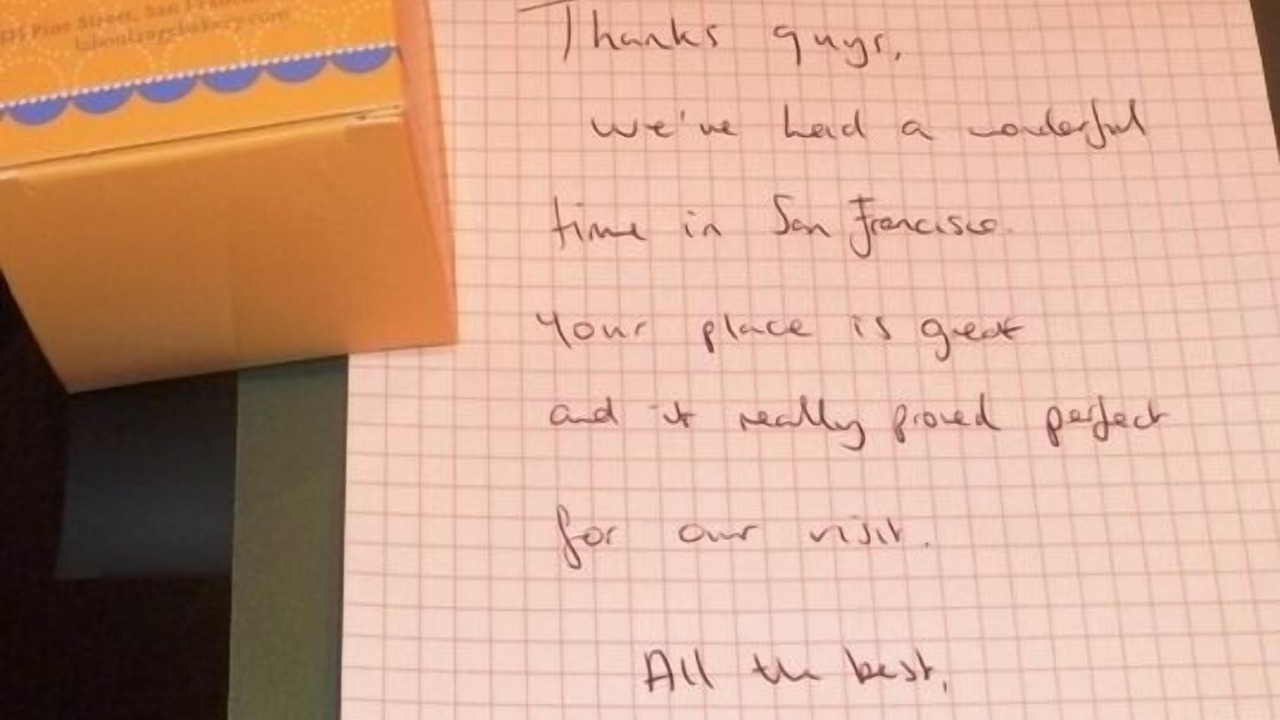 Pine Street, San
Thanks guys,
we've had a wonderful
time in San Francisco.
Your place is great
and it really proved perfect
for our visit.
All the best,